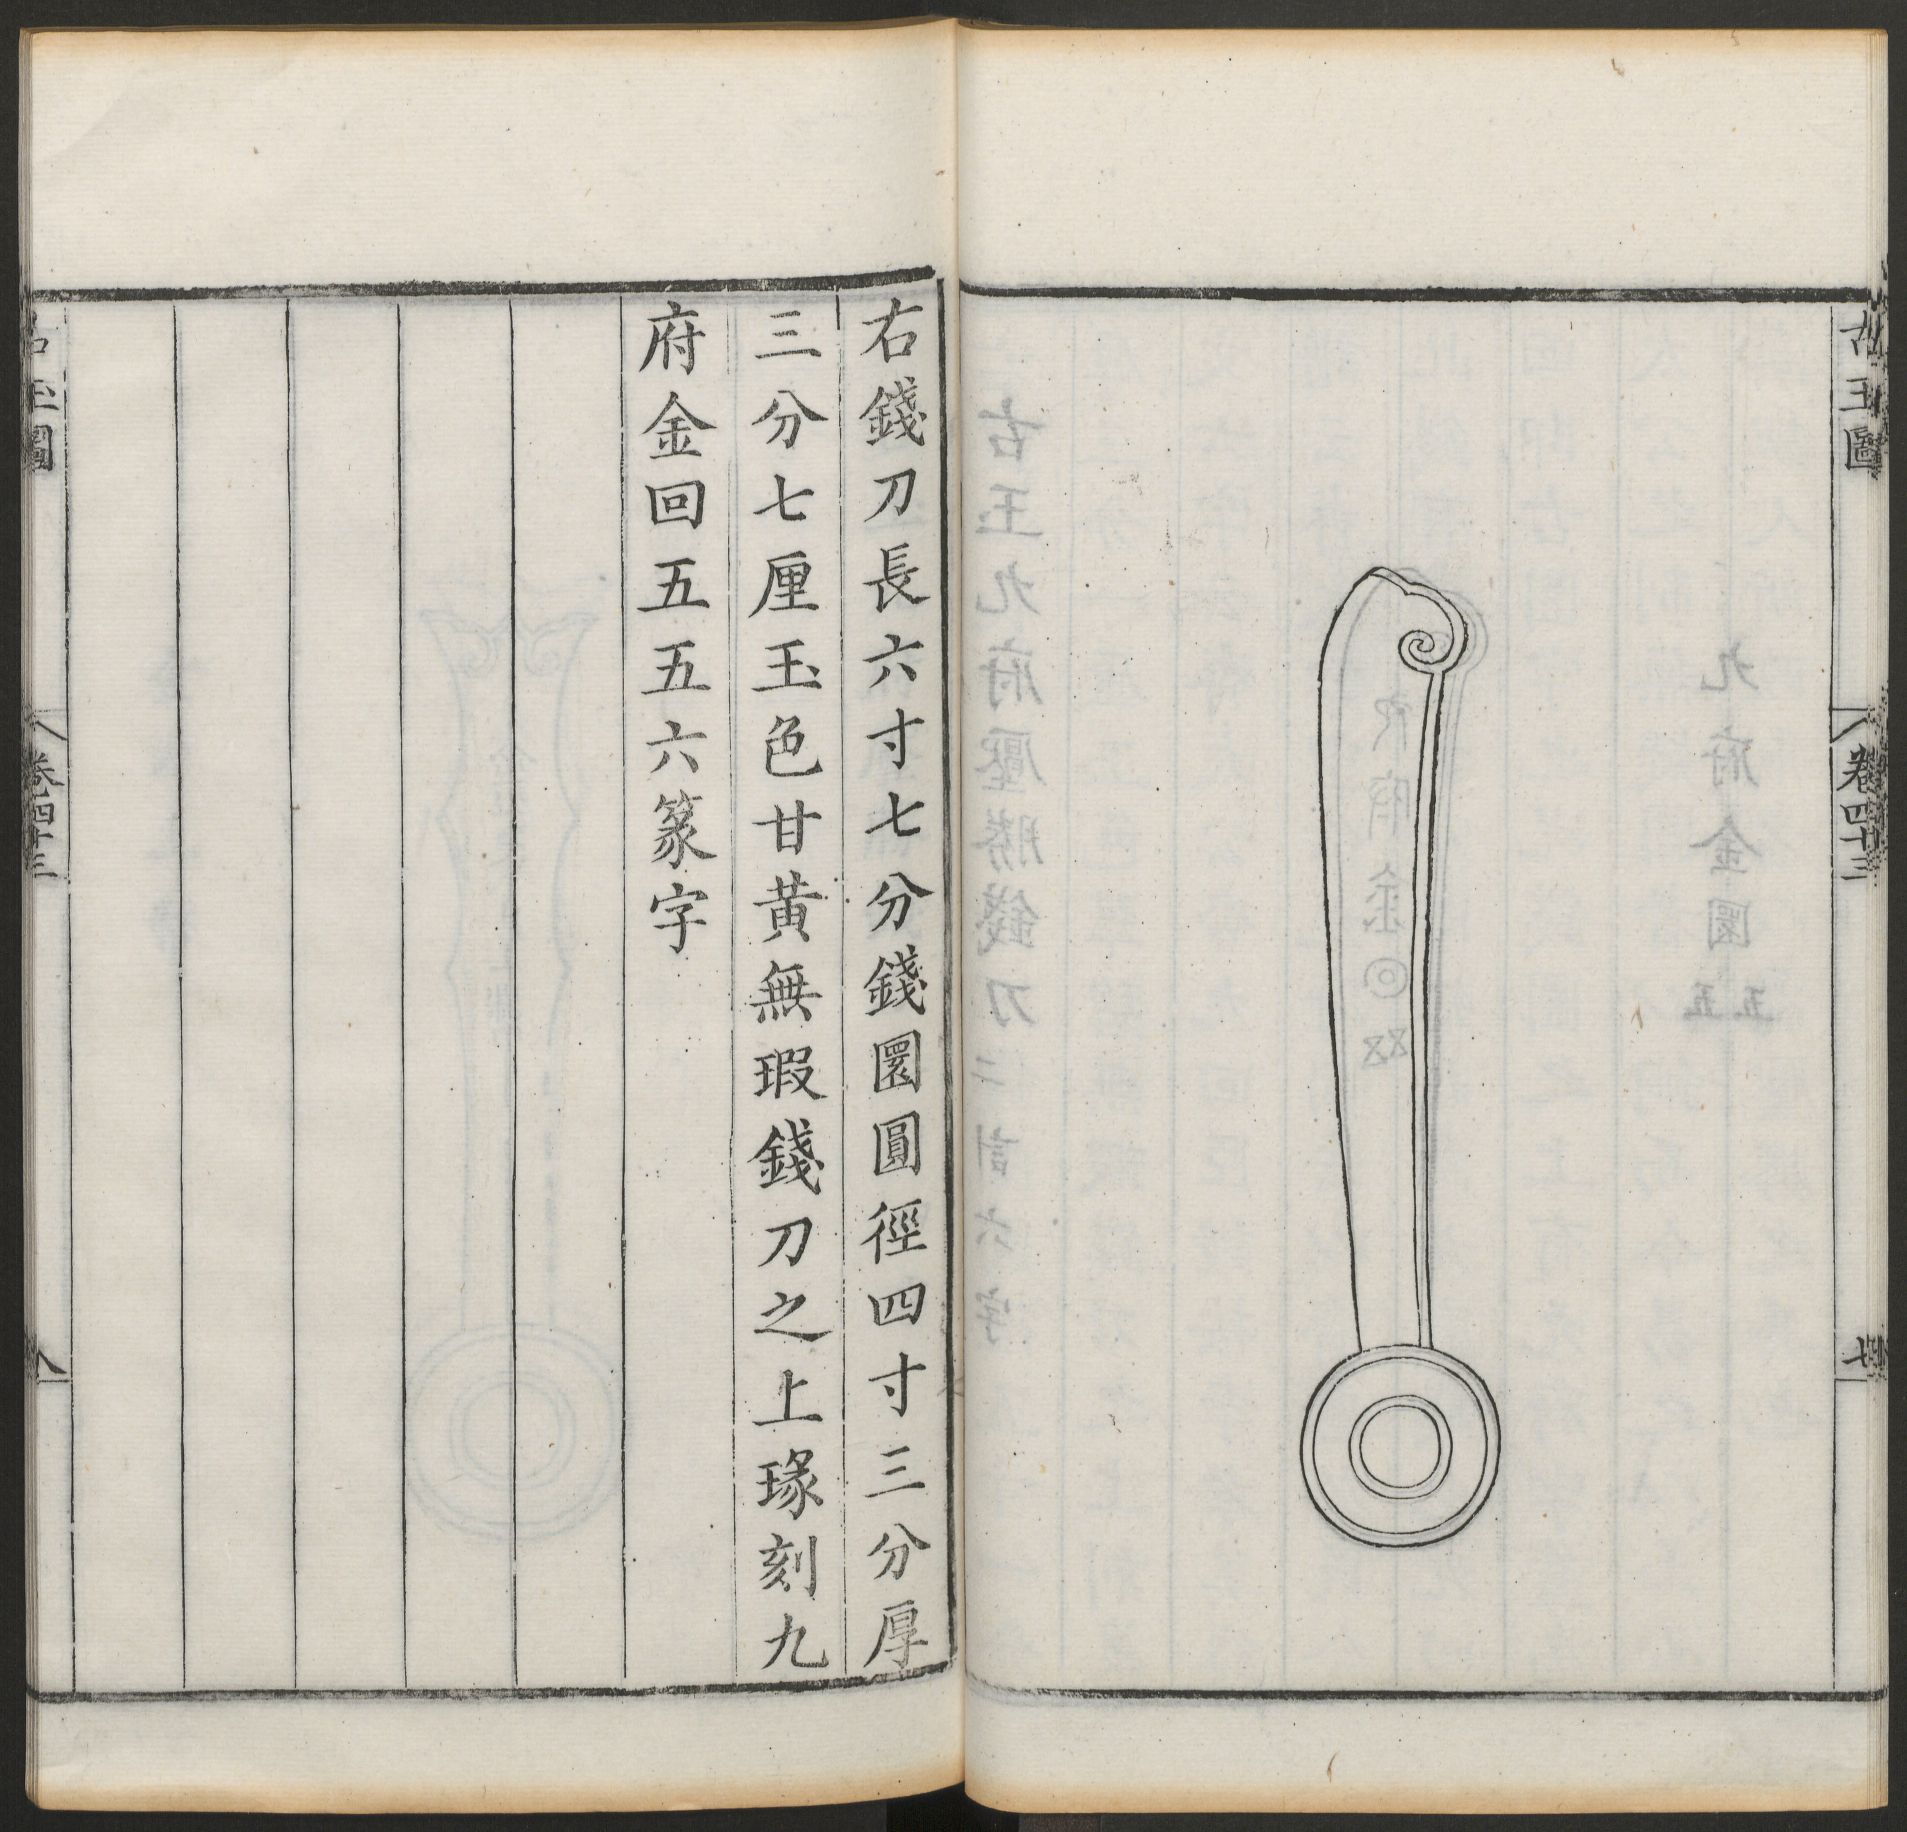 古玉圖
卷四十三
七
右錢刀長六寸七分錢圜圓徑四寸三分厚
三分七厘玉色甘黃無瑕錢刀之上瑑刻九
府金回五五六篆字
古玉圖
卷四十三
八